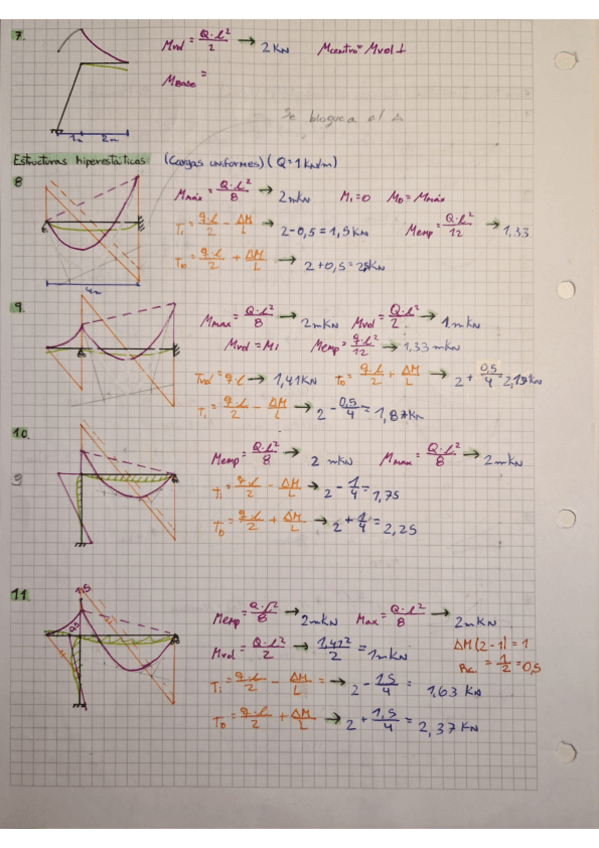 7. Mvol = Q·l²/2 → 2 kN Mcentro = Mvol +
MBase =
Se bloquea el Δ
1m 2m
Estructuras hiperestáticas (Cargas uniformes) (Q = 1 kN/m)
8 Mmáx = Q·l²/8 → 2mkN Mi=0 MD = Mmáx
Ti = q·l/2 - ΔM/L → 2-0,5 = 1,5kN Memp = Q·l²/12 → 1,33
TD = q·l/2 + ΔM/L → 2+0,5 = 25kN
4m
9. Mmax = Q·l²/8 → 2mkN Mvol = Q·l²/2 → 1mkN
Mvol = Mi Memp = q·l²/12 → 1,33 mkN
Tvol = q·l → 1,41KN TD = q·l/2 + ΔM/L → 2 + 0,5/4 = 2,19kN
Ti = q·l/2 - ΔM/L → 2 - 0,5/4 = 1,87kN
10. Memp = Q·l²/8 → 2 mkN Mmax = Q·l²/8 → 2mkN
Ti = q·l/2 - ΔM/L → 2 - 1/4 = 1,75
TD = q·l/2 + ΔM/L → 2 + 1/4 = 2,25
11 1,5 Memp = Q·l²/8 → 2mkN Max = Q·l²/8 → 2mkN
0,5 Mvol = Q·l²/2 → 1,41²/2 = 1mkN ΔM(2-1) = 1
Ti = q·l/2 - ΔM/L = → 2 - 1,5/4 = 1,63 KN = 1/2 = 0,5
TD = q·l/2 + ΔM/L → 2 + 1,5/4 = 2,37KN